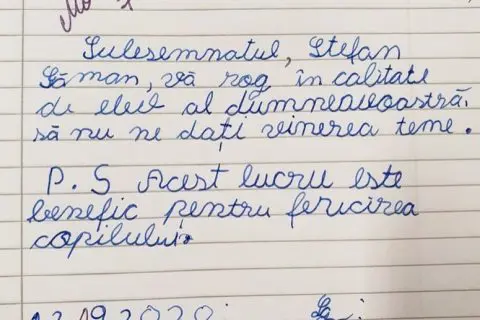 Sulesemnatul, Ștefan
Găman, vă rog în calitate
de elev al dumneavoastră,
să nu ne dați vinerea teme.
P.S Acest lucru este
benefic pentru fericirea
copilului.
2020